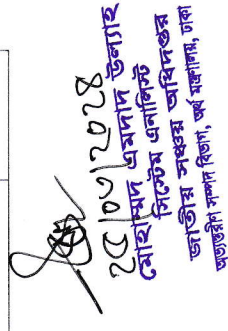 ২৫/০৩/২০২৪
মোহাম্মদ এমদাদ উল্যাহ
সিস্টেম এনালিস্ট
জাতীয় সঞ্চয় অধিদপ্তর
অভ্যন্তরীণ সম্পদ বিভাগ, অর্থ মন্ত্রণালয়, ঢাকা